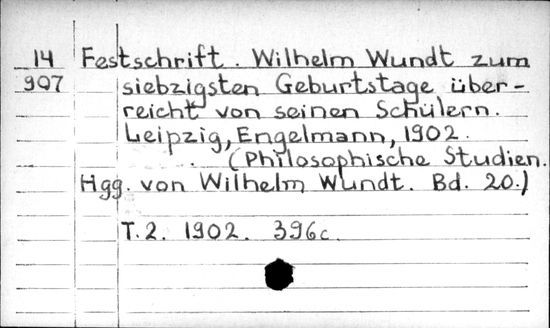 14 Festschrift. Wilhelm Wundt zum
907 siebzigsten Geburtstage über-
reicht von seinen Schülern.
Leipzig, Engelmann, 1902.
(Philosophische Studien.
Hgg. von Wilhelm Wundt. Bd. 20.)
T.2. 1902. 396c.